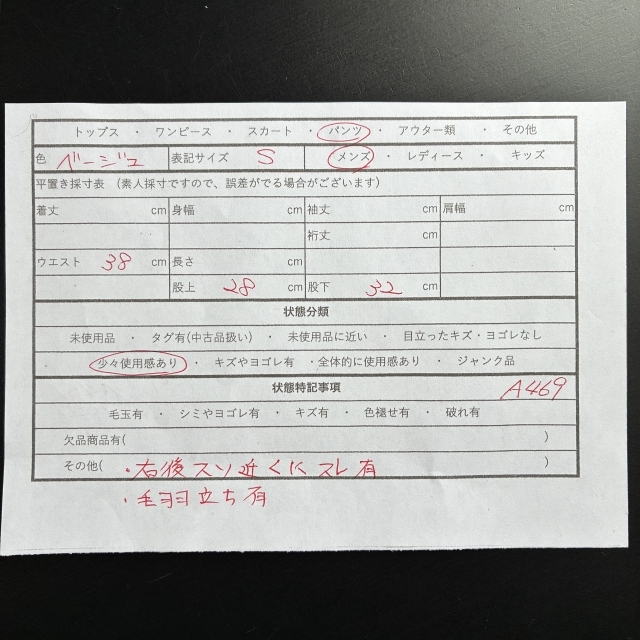 トップス ・ ワンピース ・ スカート ・ パンツ ・ アウター類 ・ その他
色 ベージュ 表記サイズ S メンズ ・ レディース ・ キッズ
平置き採寸表 （素人採寸ですので、誤差がでる場合がございます）
着丈 cm 身幅 cm 袖丈 cm 肩幅 cm
裄丈 cm
ウエスト 38 cm 長さ cm
股上 28 cm 股下 32 cm
状態分類
未使用品 ・ タグ有(中古品扱い) ・ 未使用に近い ・ 目立ったキズ・ヨゴレなし
少々使用感あり ・ キズやヨゴレ有 ・全体的に使用感あり ・ ジャンク品
状態特記事項 A469
毛玉有 ・ シミやヨゴレ有 ・ キズ有 ・ 色褪せ有 ・ 破れ有
欠品商品有( )
その他( ・右後スソ近くにスレ有 )
・毛羽立ち有